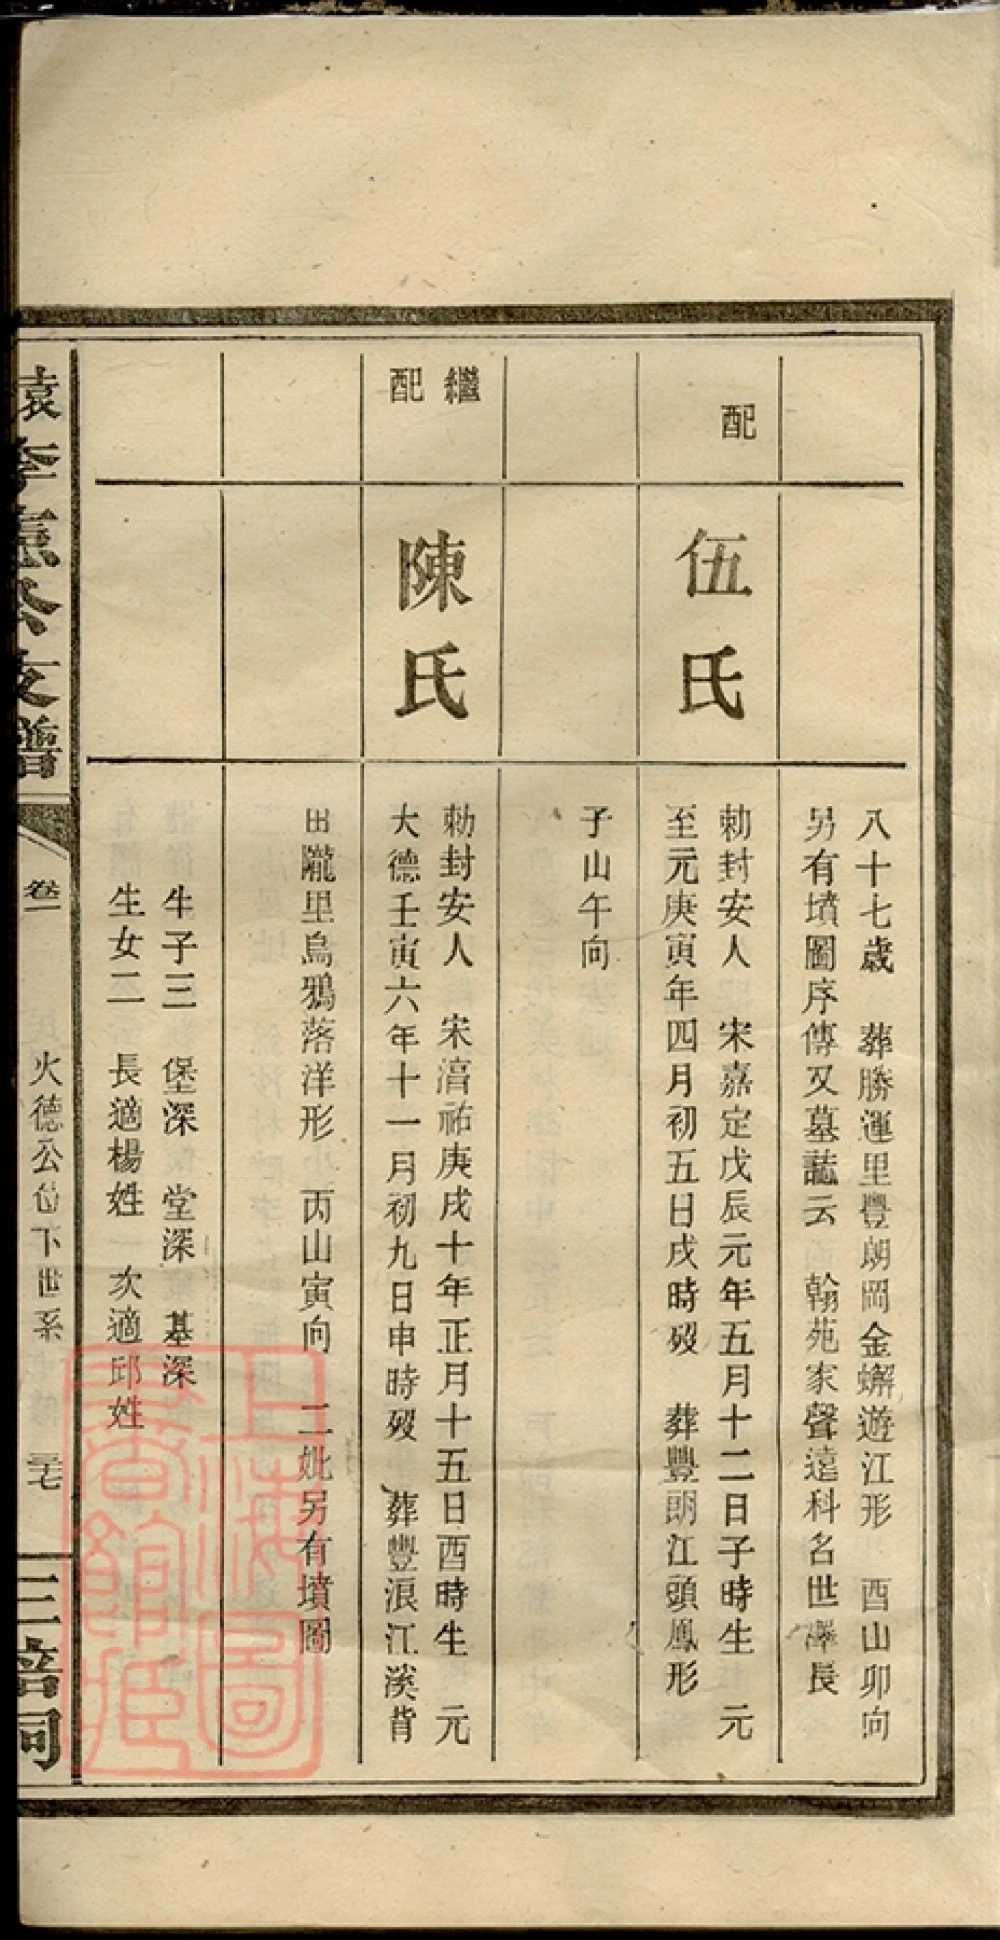 八十七歲　葬勝運里豐朗岡金蠏遊江形　酉山卯向
另有墳圖序傳又墓誌云　翰苑家聲遠科名世澤長
配
伍氏
勅封安人　宋嘉定戊辰元年五月十二日子時生　元
至元庚寅年四月初五日戌時歿　葬豐朗江頭鳳形
子山午向
繼配
陳氏
勅封安人　宋淯祐庚戌十年正月十五日酉時生　元
大德壬寅六年十一月初九日申時歿　葬豐浪江溪背
田隴里烏鴉落洋形　丙山寅向　二妣另有墳圖
生子三　堡深　堂深　基深
生女二　長適楊姓　次適邱姓
李憲公支譜
卷一
火德公位下世系
三培祠
上海圖
書館藏